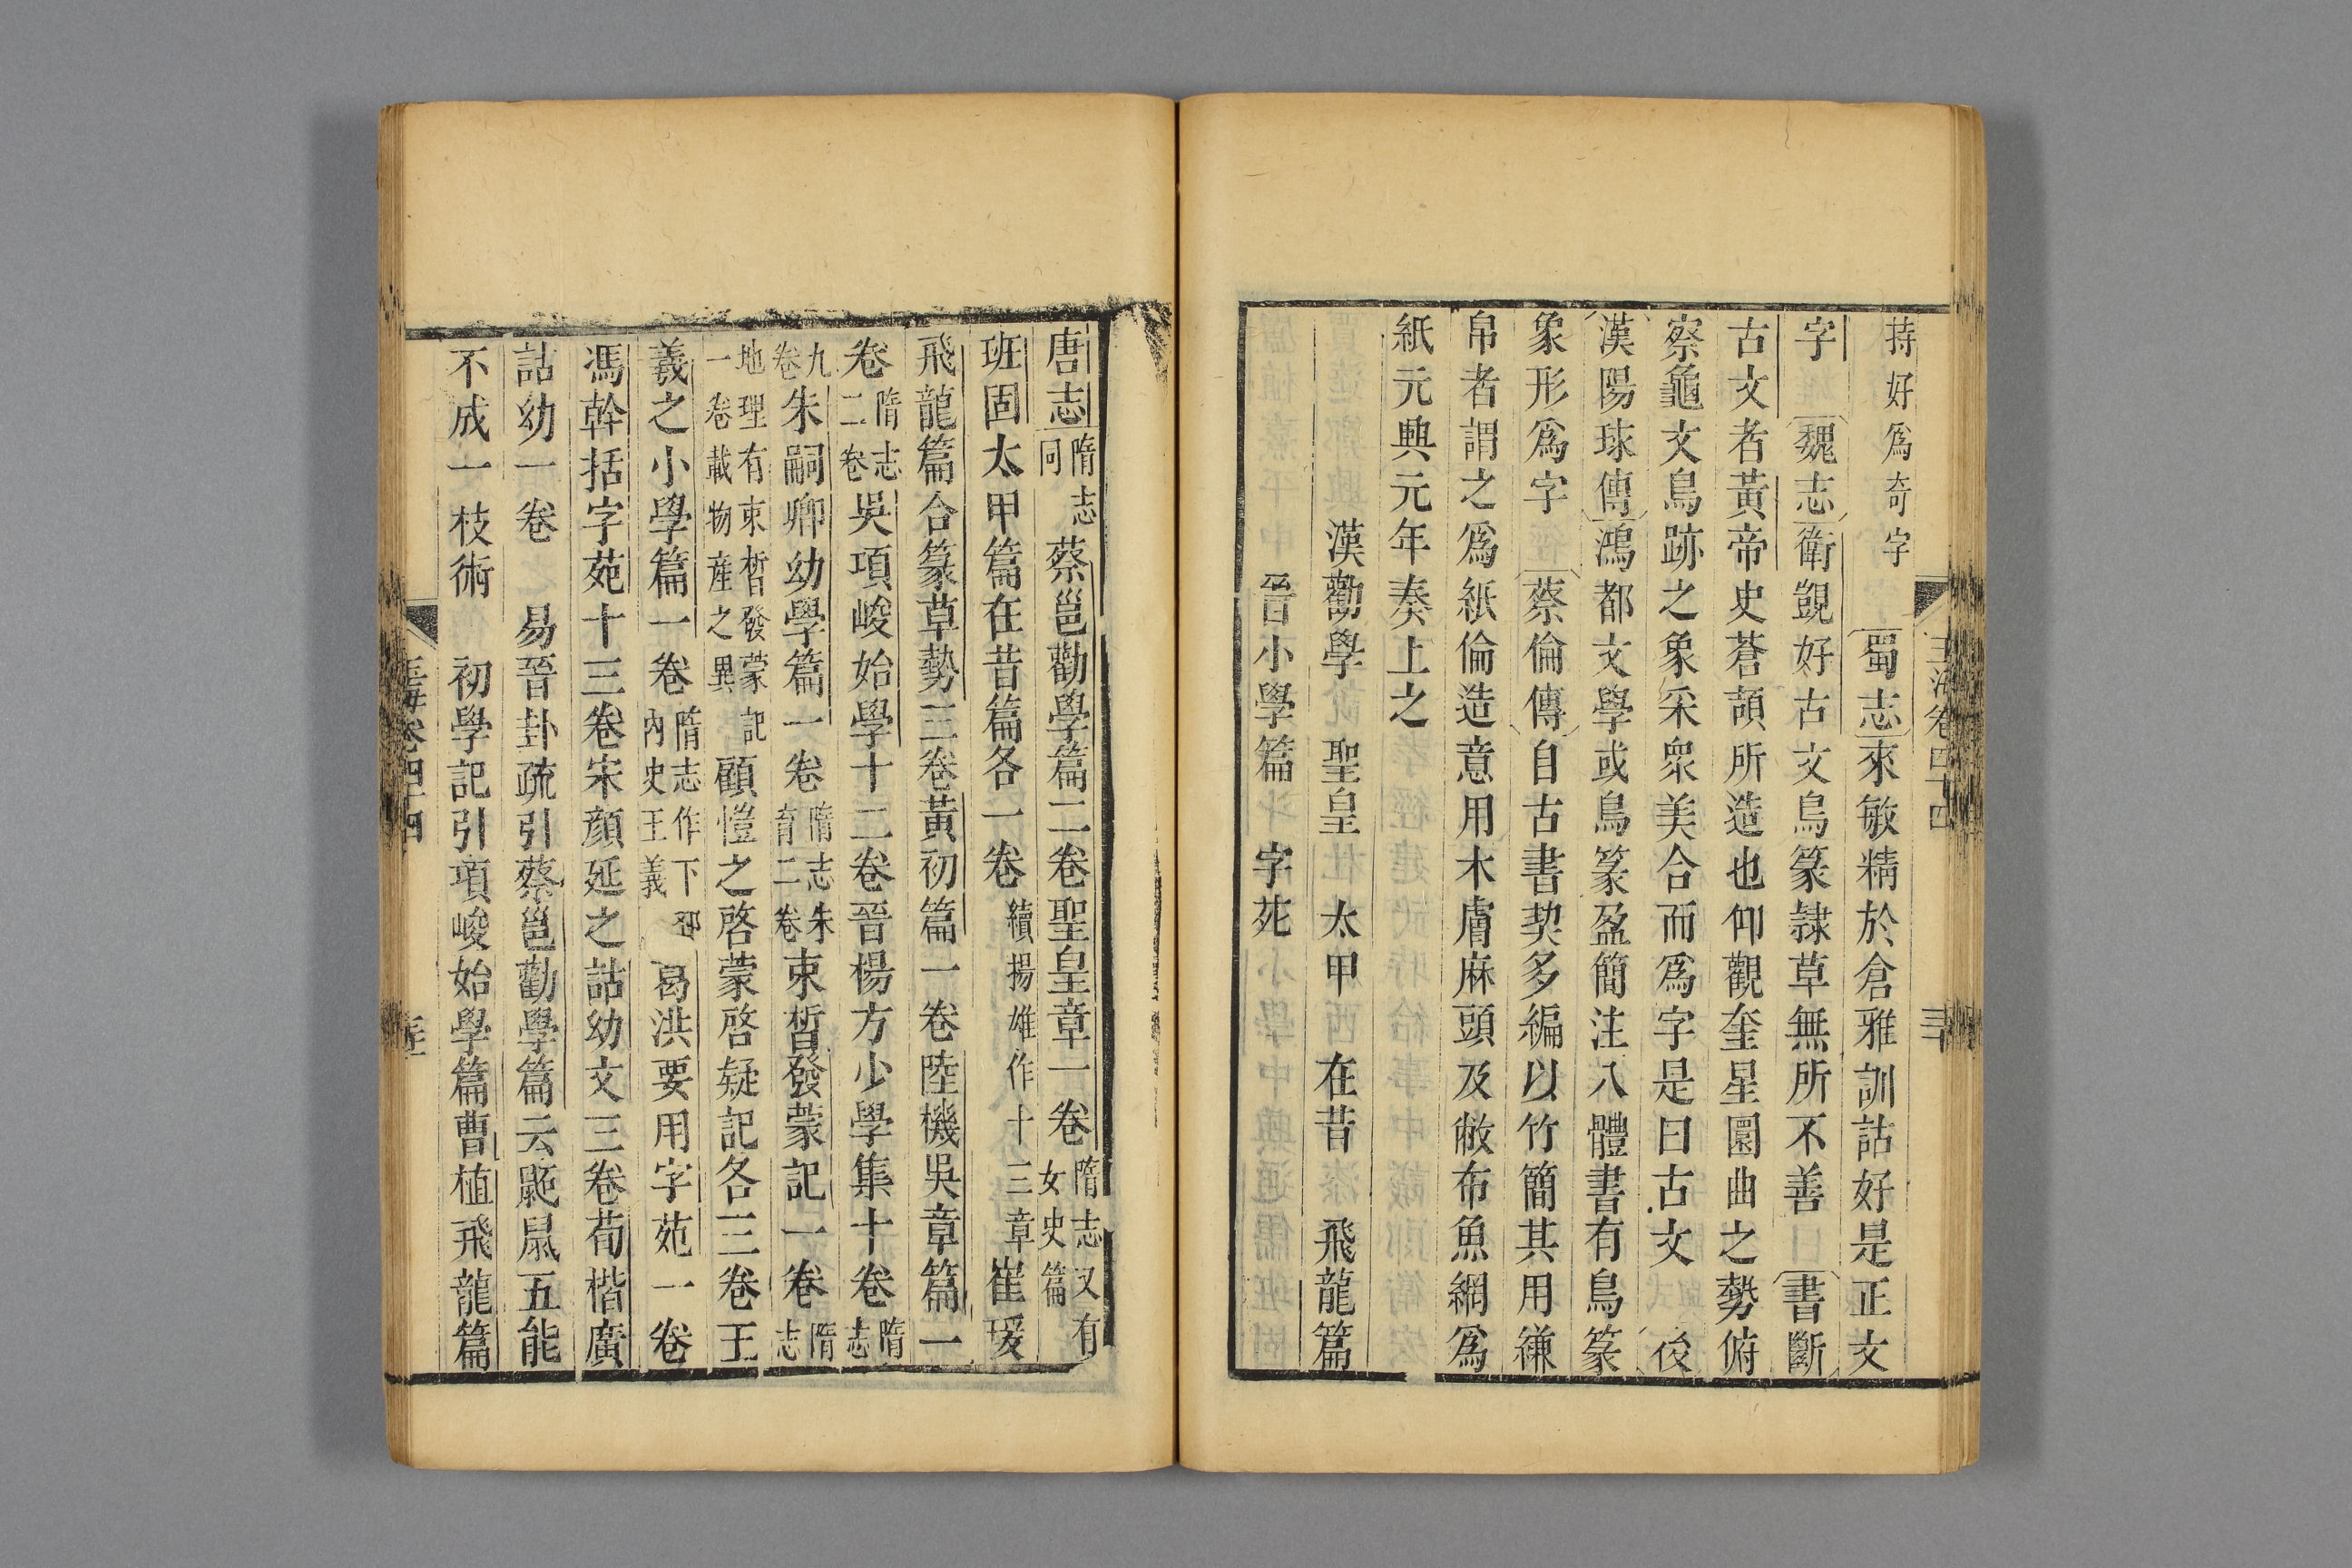 持好爲奇字　蜀志來敏精於倉雅訓詁好是正文
字　魏志衛覬好古文鳥篆隷草無所不善　書斷
古文者黃帝史蒼頡所造也仰觀奎星圜曲之勢俯
察龜文鳥跡之象采衆美合而爲字是曰古文　後
漢陽球傳鴻都文學或鳥篆盈簡注八體書有鳥篆
象形爲字　蔡倫傳自古書契多編以竹簡其用縑
帛者謂之爲紙倫造意用木膚麻頭及敝布魚網爲
紙元興元年奏上之
漢勸學　聖皇　太甲　在昔　飛龍篇
晉小學篇　字苑
玉海卷四十四　三十
唐志隋志同蔡邕勸學篇一卷聖皇章一卷隋志又有女史篇
班固太甲篇在昔篇各一卷續揚雄作十三章崔瑗
飛龍篇合篆草勢三卷黃初篇一卷陸機吳章篇一
卷隋志二卷吳項峻始學十二卷晉楊方少學集十卷隋志
九卷朱嗣卿幼學篇一卷隋志朱育二卷束晳發蒙記一卷隋志
地理有束晳發蒙記一卷載物産之異顧愷之啓蒙啓疑記各三卷王
羲之小學篇一卷隋志作下邳內史王義葛洪要用字苑一卷
馮幹括字苑十三卷宋顔延之詁幼文三卷荀楷廣
詁幼一卷　易晉卦疏引蔡邕勸學篇云鼫鼠五能
不成一枝術　初學記引項峻始學篇曹植飛龍篇
玉海卷四十四